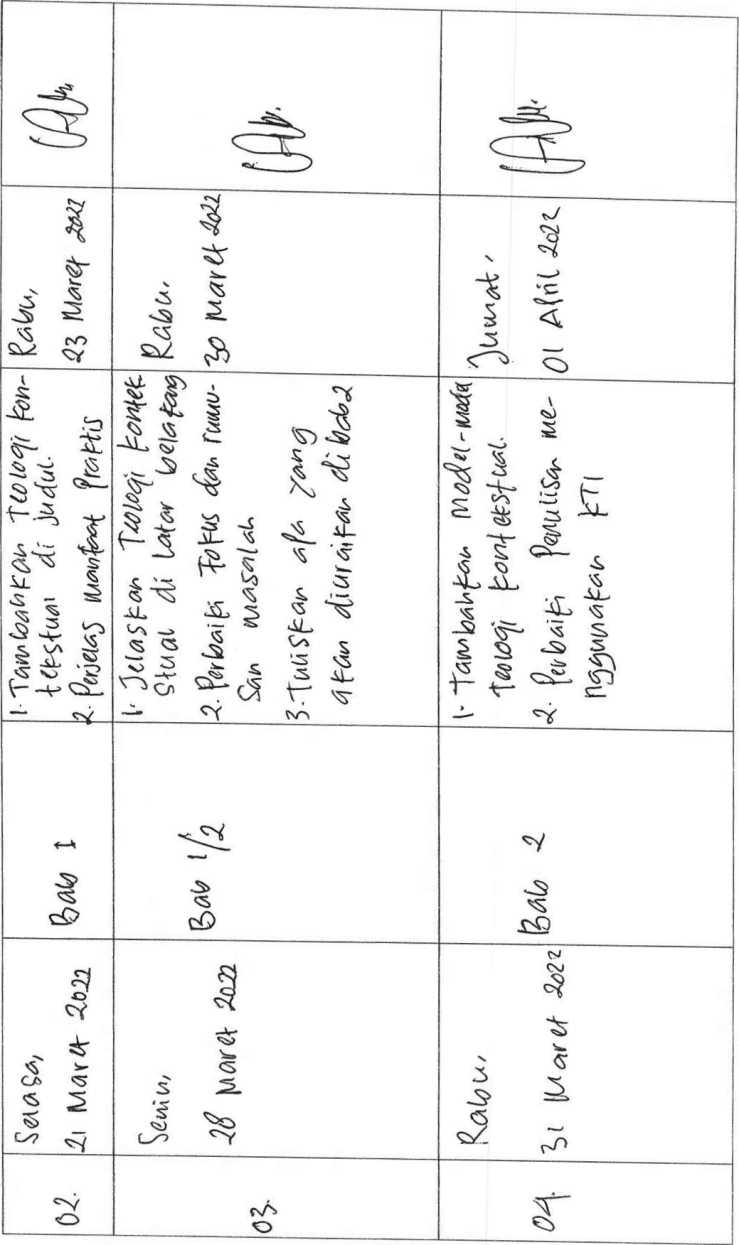 02.
Selasa,
21 Maret 2022
Bab 1
1. Tambahkan Teologi kon-
tekstual di judul.
2. Perjelas manfaat Praktis
Rabu,
23 Maret 2022
03.
Senin,
28 Maret 2022
Bab 1/2
1. Jelaskan Teologi kontek
stual di Latar belakang
2. Perbaiki Fokus dan rumu-
san masalah
3. Tuliskan apa yang
akan diuraikan di bab2
Rabu,
30 Maret 2022
04.
Rabu,
31 Maret 2022
Bab 2
1. Tambahkan Model-model
Teologi kontekstual.
2. Perbaiki Penulisan me-
nggunakan KTI
Jumat,
01 April 2022